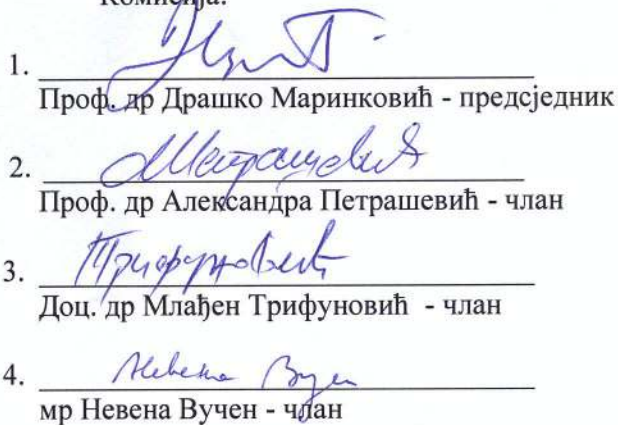 Комисија:
1.
Проф. др Драшко Маринковић - предсједник
2.
Проф. др Александра Петрашевић - члан
3. Трифуновић
Доц. др Млађен Трифуновић - члан
4. Невена Вучен
мр Невена Вучен - члан